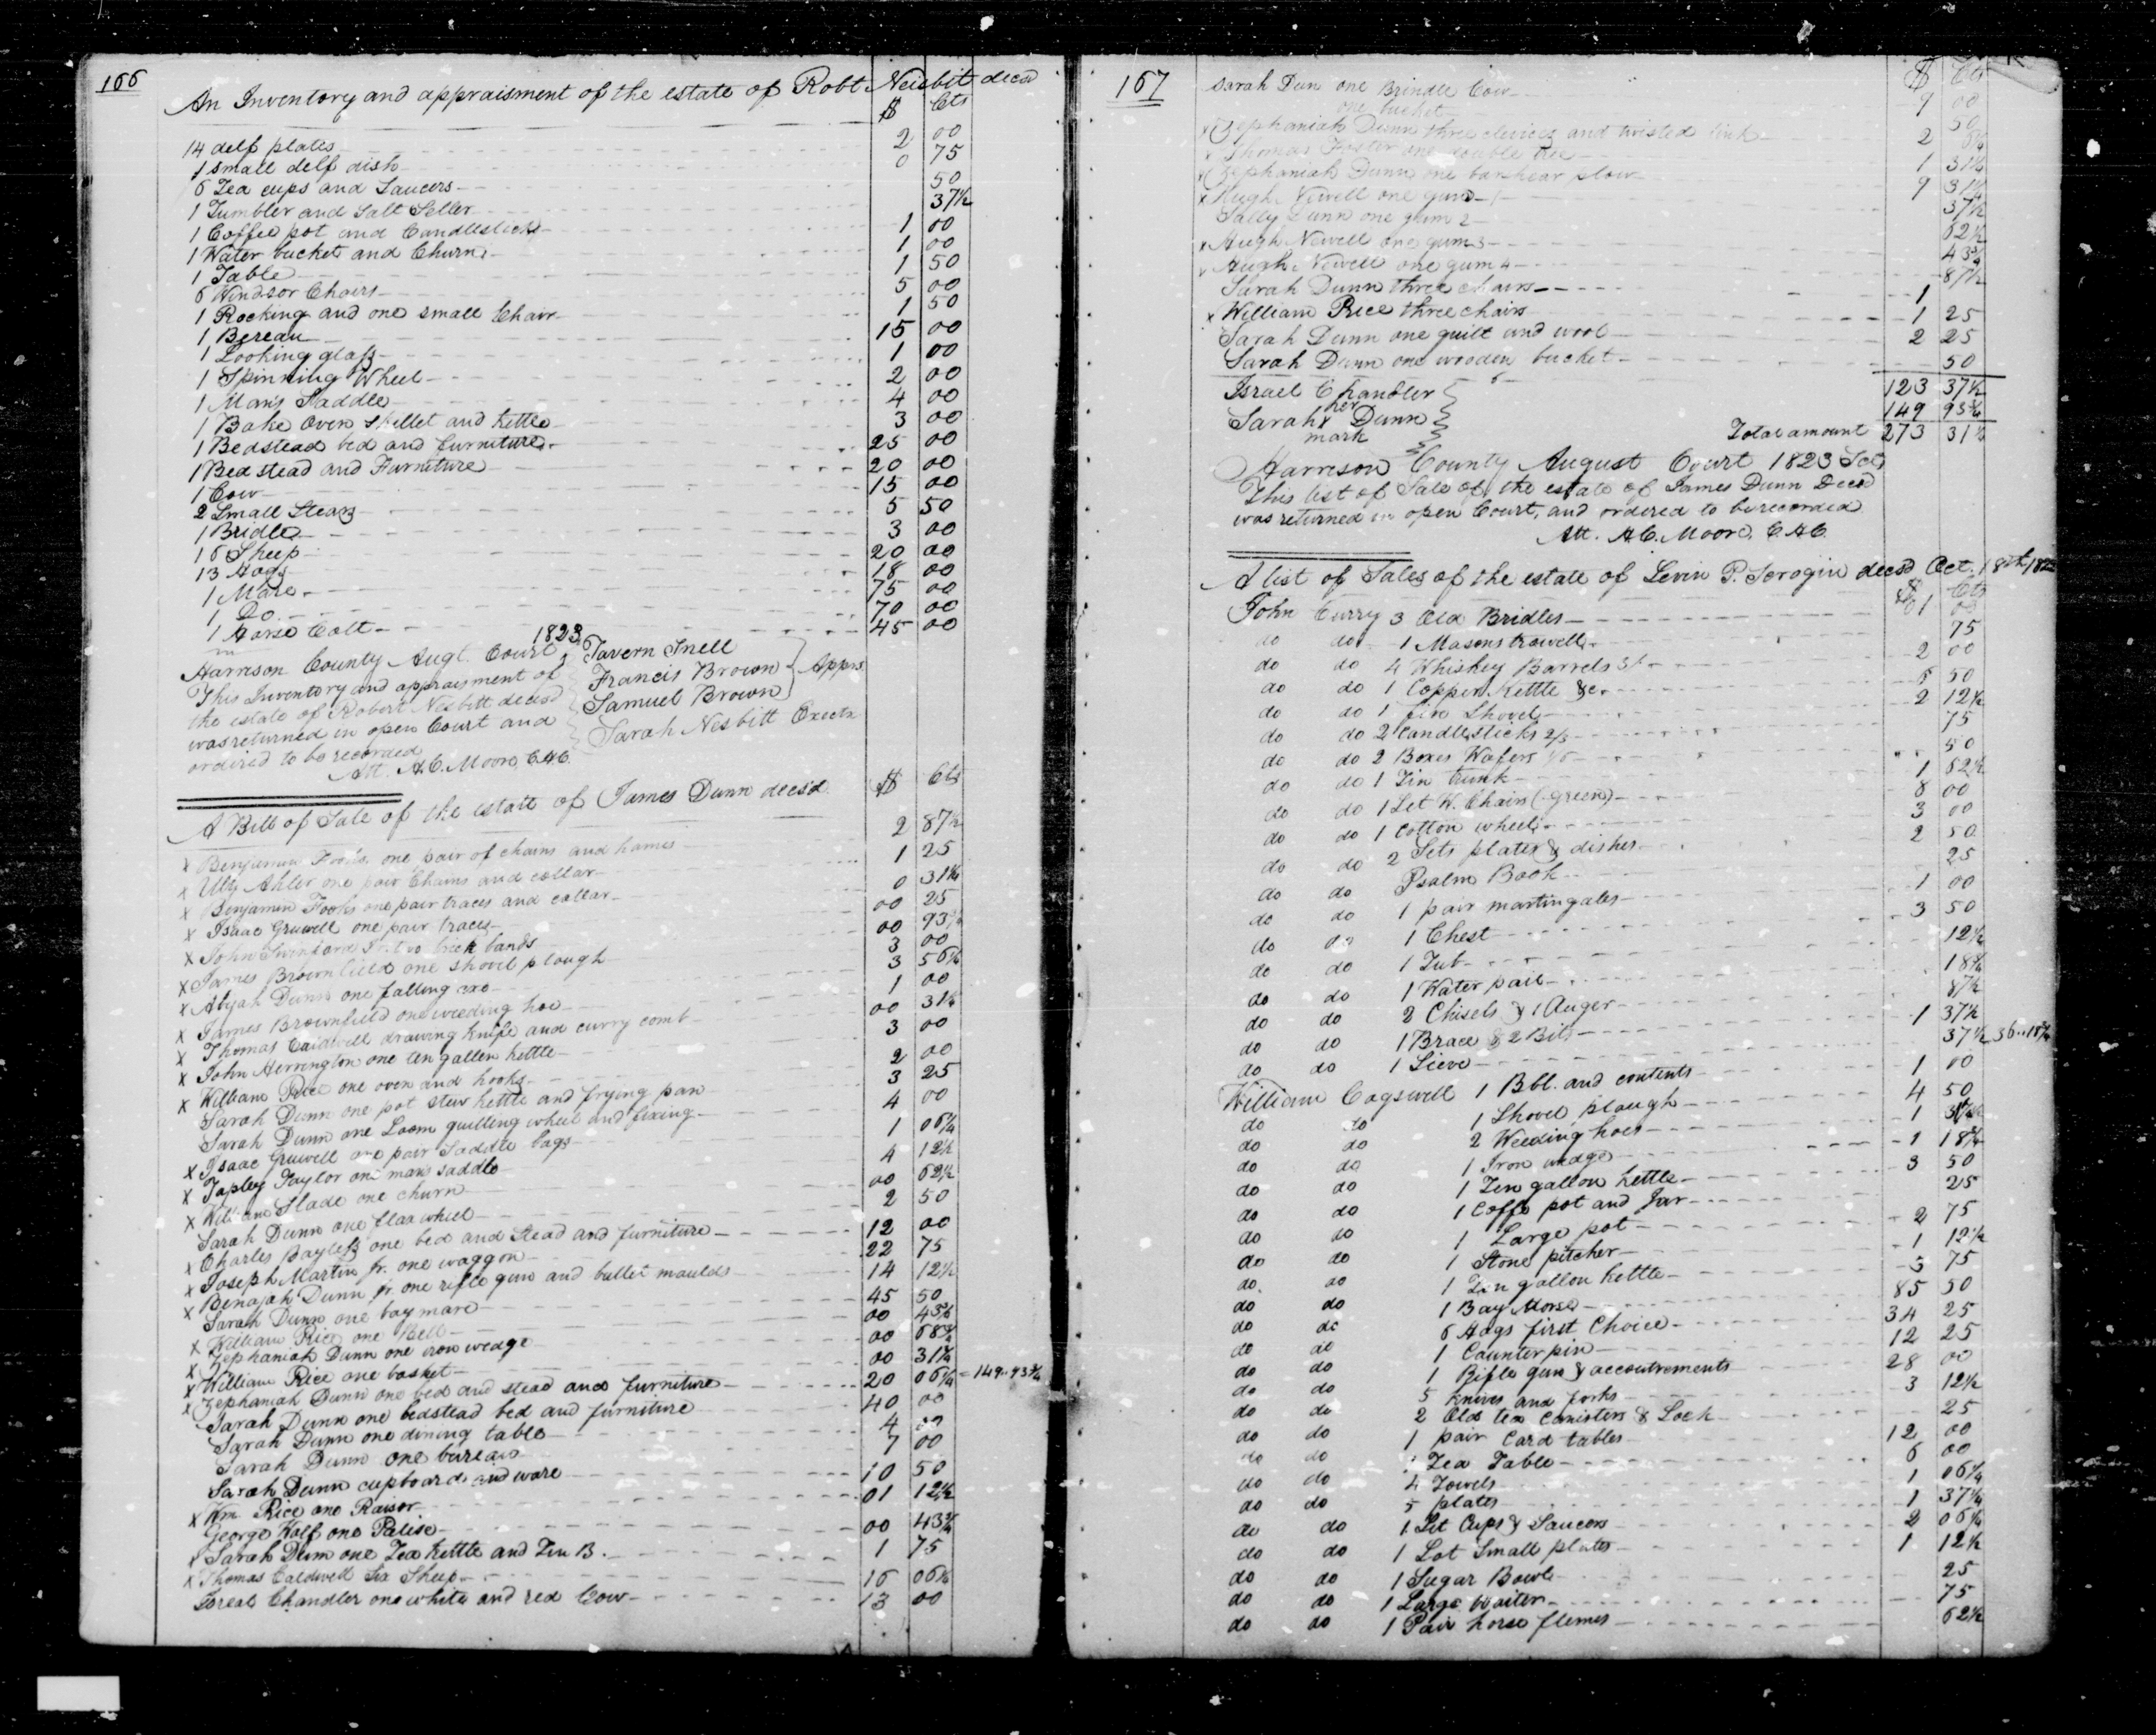 166
An Inventory and appraisment of the estate of Robt. Neisbit decsd
$ Cts
14 delf plates 2 00
1 small delf dish 0 75
6 Tea cups and Saucers 50
1 Tumbler and Salt Seller 37½
1 Coffee pot and Candlestick 1 00
1 Water bucket and Churn 1 00
1 Table 1 50
6 Windsor Chairs 5 00
1 Rocking and one small Chair 1 50
1 Bereau 15 00
1 Looking glass 1 00
1 Spinning Wheel 2 00
1 Mans Saddle 4 00
1 Bake Oven Skillet and Kettle 3 00
1 Bedstead bed and furniture 25 00
1 Bed stead and Furniture 20 00
1 Cow 15 00
2 Small Stears 5 50
1 Bridle 3 00
16 Sheep 20 00
13 Hogs 18 00
1 Mare 75 00
1 Do 70 00
1 Horse Colt 45 00
Harrison County Augt. Court 1823
This Inventory and appraisment of
the estate of Robert Nesbitt decsd
was returned in open Court and
ordired to be recorded
Att. A.C. Moore, C.H.C.
Tavern Snell
Francis Brown
Samuel Brown
Apprs
Sarah Nesbitt Exectx
A Bill of Sale of the estate of James Dunn decsd. $ Cts
X Benjamin Fooks, one pair of chains and hames 2 87½
X Uly Ahler one pair Chains and collar 1 25
X Benjamin Fooks one pair traces and collar 0 31¼
X Isaac Gruwell one pair traces 00 25
X John Swinford two back bands 00 93¾
X James Brownfield one shovel plough 3 00
X Abijah Dunn one falling axe 3 56¼
X James Brownfield one weeding hoe 1 00
X Thomas Caldwell drawing knife and curry comb 00 31¼
X John Herrington one ten gallon kettle 3 00
X William Rice one oven and hooks 2 00
Sarah Dunn one pot stew kettle and frying pan 3 25
Sarah Dunn one Loom quilting wheel and fixing 4 00
X Isaac Gruwell one pair Saddle bags 1 06¼
X Tapley Taylor one mans saddle 4 12½
X William Slade one churn 00 62½
Sarah Dunn one flax wheel 2 50
X Charles Bayless one bed and Stead and furniture 12 00
X Joseph Martin Jr. one waggon 22 75
X Benajah Dunn Jr. one rifle gun and bullet moulds 14 12½
Sarah Dunn one bay mare 45 50
X William Rice one Bell 00 43¾
X Zephaniah Dunn one iron wedge 00 68¾
X William Rice one basket 00 31¼
X Zephaniah Dunn one bed and stead and furniture 20 06¼ = 149..93¾
Sarah Dunn one bedstead bed and furniture 40 00
Sarah Dunn one dining table 4 00
Sarah Dunn one bureau 7 00
Sarah Dunn cupboard and ware 10 50
X Wm. Rice one Rawor 01 12½
George Wolf one Palise 00 43¾
X Sarah Dunn one Tea kettle and Tin B. 1 75
X Thomas Caldwell Six Sheep 16 06¼
Isreal Chandler one white and red Cow 13 00
167
$ Cts
Sarah Dun one Brindle Cow 9 00
one bucket 50
X Zephaniah Dunn three clevices and twisted link 2
X Thomas Foster one double tree 1 31¼
X Zephaniah Dunn one bar shear plow 9 31¼
X Hugh Newell one gum 1 37½
Sally Dunn one gum 2 62½
X Hugh Newell one gum 3 43¾
X Hugh Newell one gum 4 87½
Sarah Dunn three chairs 1
X William Rice three chairs 1 25
Sarah Dunn one quilt and wool 2 25
Sarah Dunn one wooden bucket 50
Israel Chandler 123 37½
her
Sarah X Dunn 149 93¾
mark
Total amount 273 31¼
Harrison County August Court 1823 Sct
This list of Sale of the estate of James Dunn Decsd
was returned in open Court, and ordired to be recorded
Att. A.C. Moore, C.H.C.
A list of Sales of the estate of Levin P. Scrogin decsd Oct. 18th 1822
$ Cts
John Curry 3 Old Bridles 01 00
do do 1 Masons trowell 75
do do 4 Whiskey Barrels 3/ 2 00
do do 1 Copper Kettle &c. 5 50
do do 1 fire Shovel 2 12½
do do 2 Candlesticks 2/3 75
do do 2 Boxes Wafers 1/6 50
do do 1 Tin trunk 1 62½
do do 1 Set W. Chairs (green) 8 00
do do 1 Cotton wheel 3 00
do do 2 Sets plates & dishes 2 50
do do Psalm Book 25
do do 1 pair martingales 1 00
do do 1 Chest 3 50
do do 1 Tub 12½
do do 1 Water pail 18¾
do do 2 Chisels & 1 Auger 87½
do do 1 Brace & 2 Bits 1 37½
do do 1 Sieve 37½ 36..18¾
William Cogswell 1 Bbl. and contents 1 00
do do 1 Shovel plough 4 50
do do 2 Weeding hoes 1
do do 1 Iron wedge 1 18¾
do do 1 Ten gallon kettle 3 50
do do 1 Coffe pot and Jar 25
do do 1 Large pot 2 75
do do 1 Stone pitcher 1 12½
do do 1 Ten gallon kettle 3 75
do do 1 Bay Horse 85 50
do do 6 Hogs first Choice 34 25
do do 1 Counterpin 12 25
do do 1 Rifle gun & accoutrements 28 00
do do 5 Knives and forks 3 12½
do do 2 Old tea Canisters & Lock 25
do do 1 pair Card tables 12 00
do do 1 Tea Table 6 00
do do 4 Towels 1 06¼
do do 5 plates 1 37½
do do 1 Set Cups & Saucers 2 06¼
do do 1 Lot Small plates 1 12½
do do 1 Sugar Bowl 25
do do 1 Large Waiter 75
do do 1 Pair horse flemes 62½